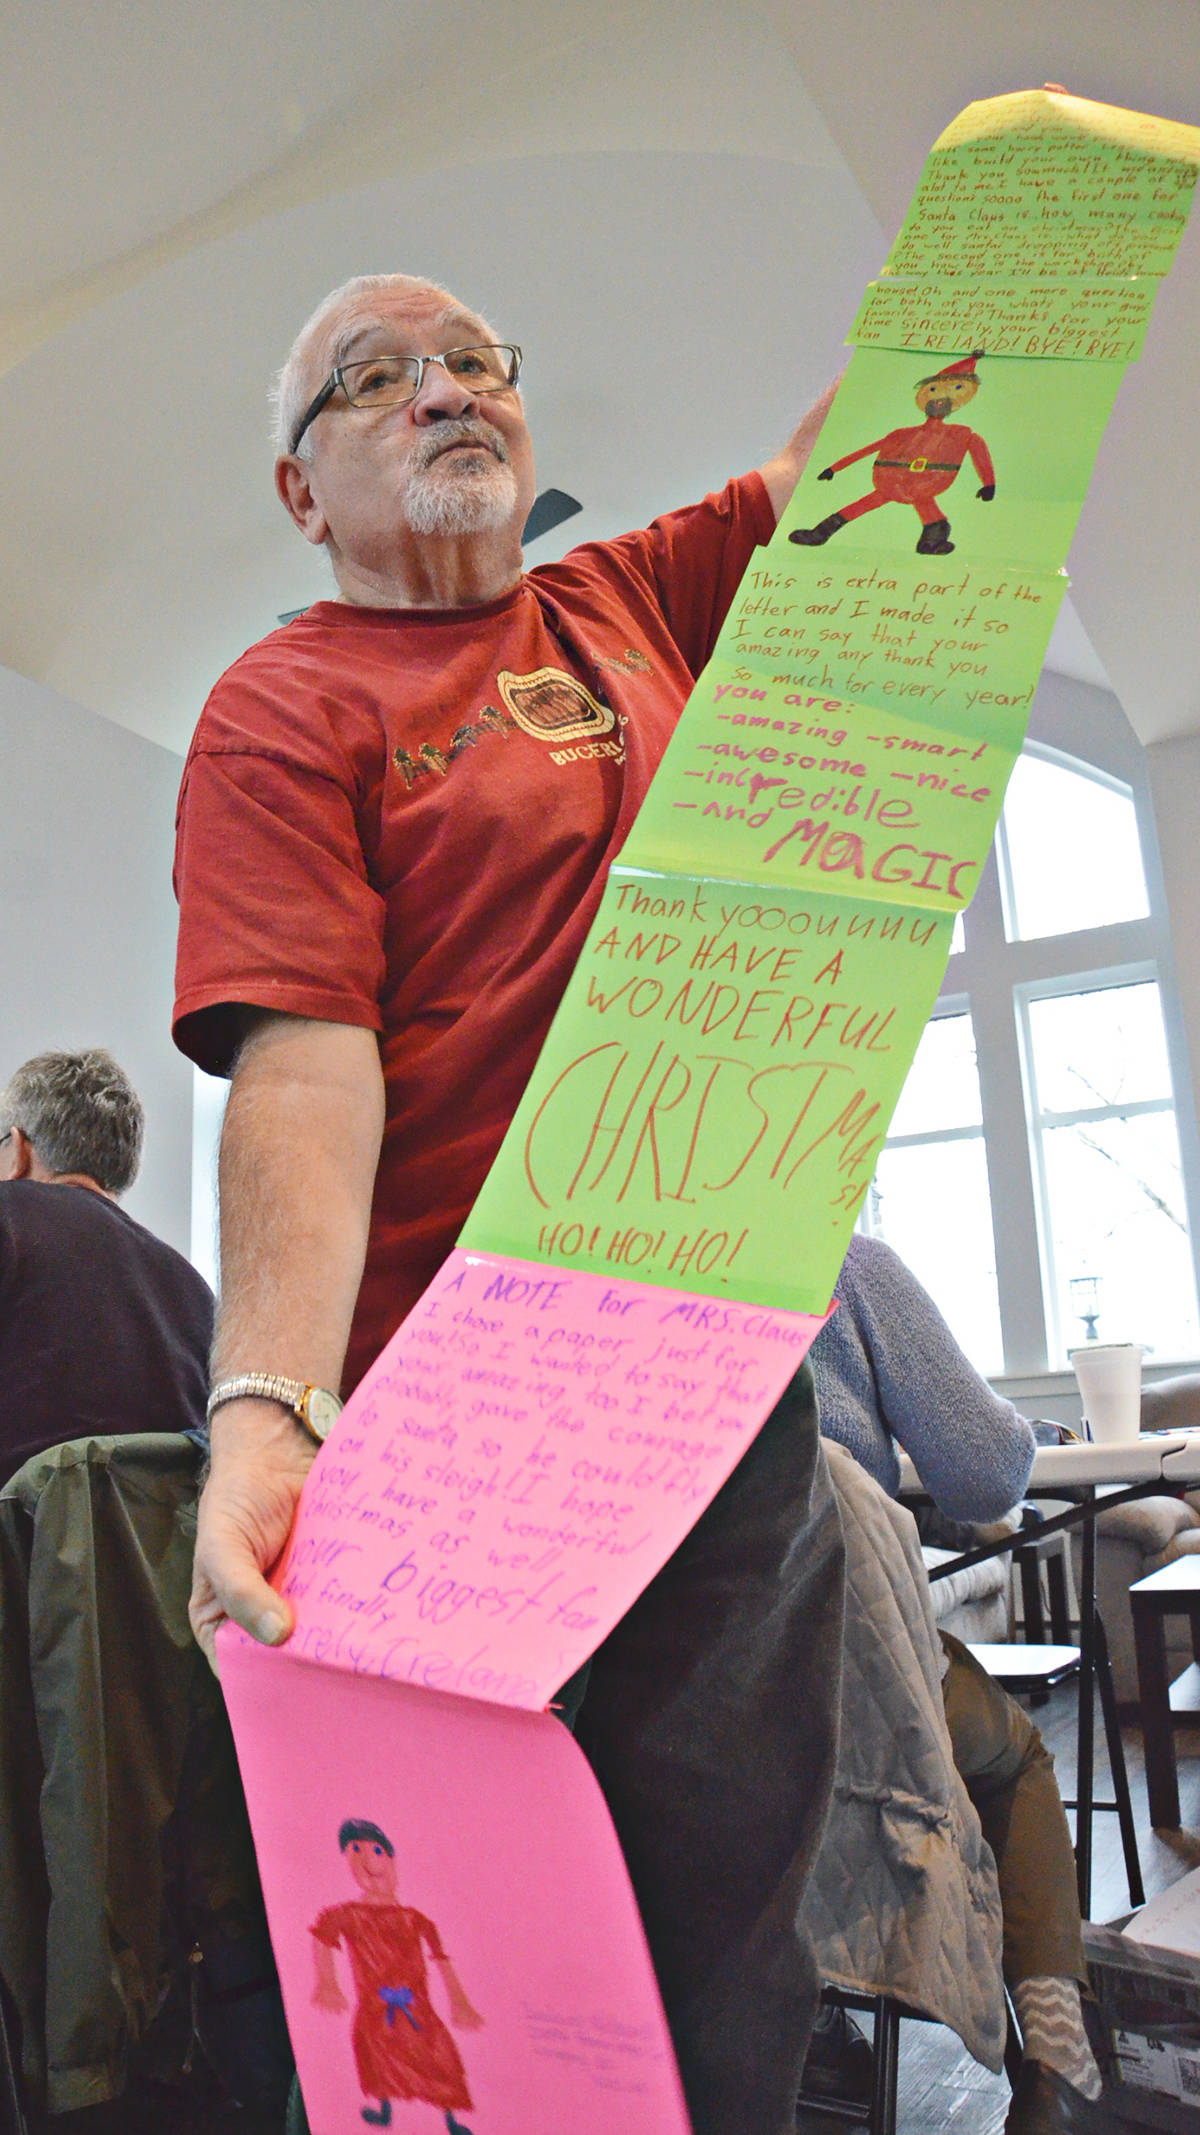 your hand
some harry potter
like build your own thing
Thank you sowmuch! It means
alot to me. I have a couple of
questions soooo the first one for
Santa Claus is... how many cookies
do you eat on christmas? The first
one for Mrs. Claus is... what do you
do well santas dropping off presents
? The second one is for both of
you how big is the workshop? By
the way this year I'll be at
house! Oh and one more question
for both of you whats your guys
favorite cookie? Thanks for your
time sincerely, your biggest
fan IRELAND! BYE! BYE!
This is extra part of the
letter and I made it so
I can say that your
amazing any thank you
so much for every year!
you are:
-amazing -smart
-awesome -nice
-incredible
-And MAGIC
Thank yooouuuuu
AND HAVE A
WONDERFUL
CHRISTMAS!
HO! HO! HO!
A NOTE For MRS. Claus
I chose a paper just for
you! So I wanted to say that
your amazing too I bet you
probably gave the courage
to santa so he could fly
on his sleigh! I hope
you have a wonderful
christmas as well
your biggest fan
And finally
Ireland
BUCERI